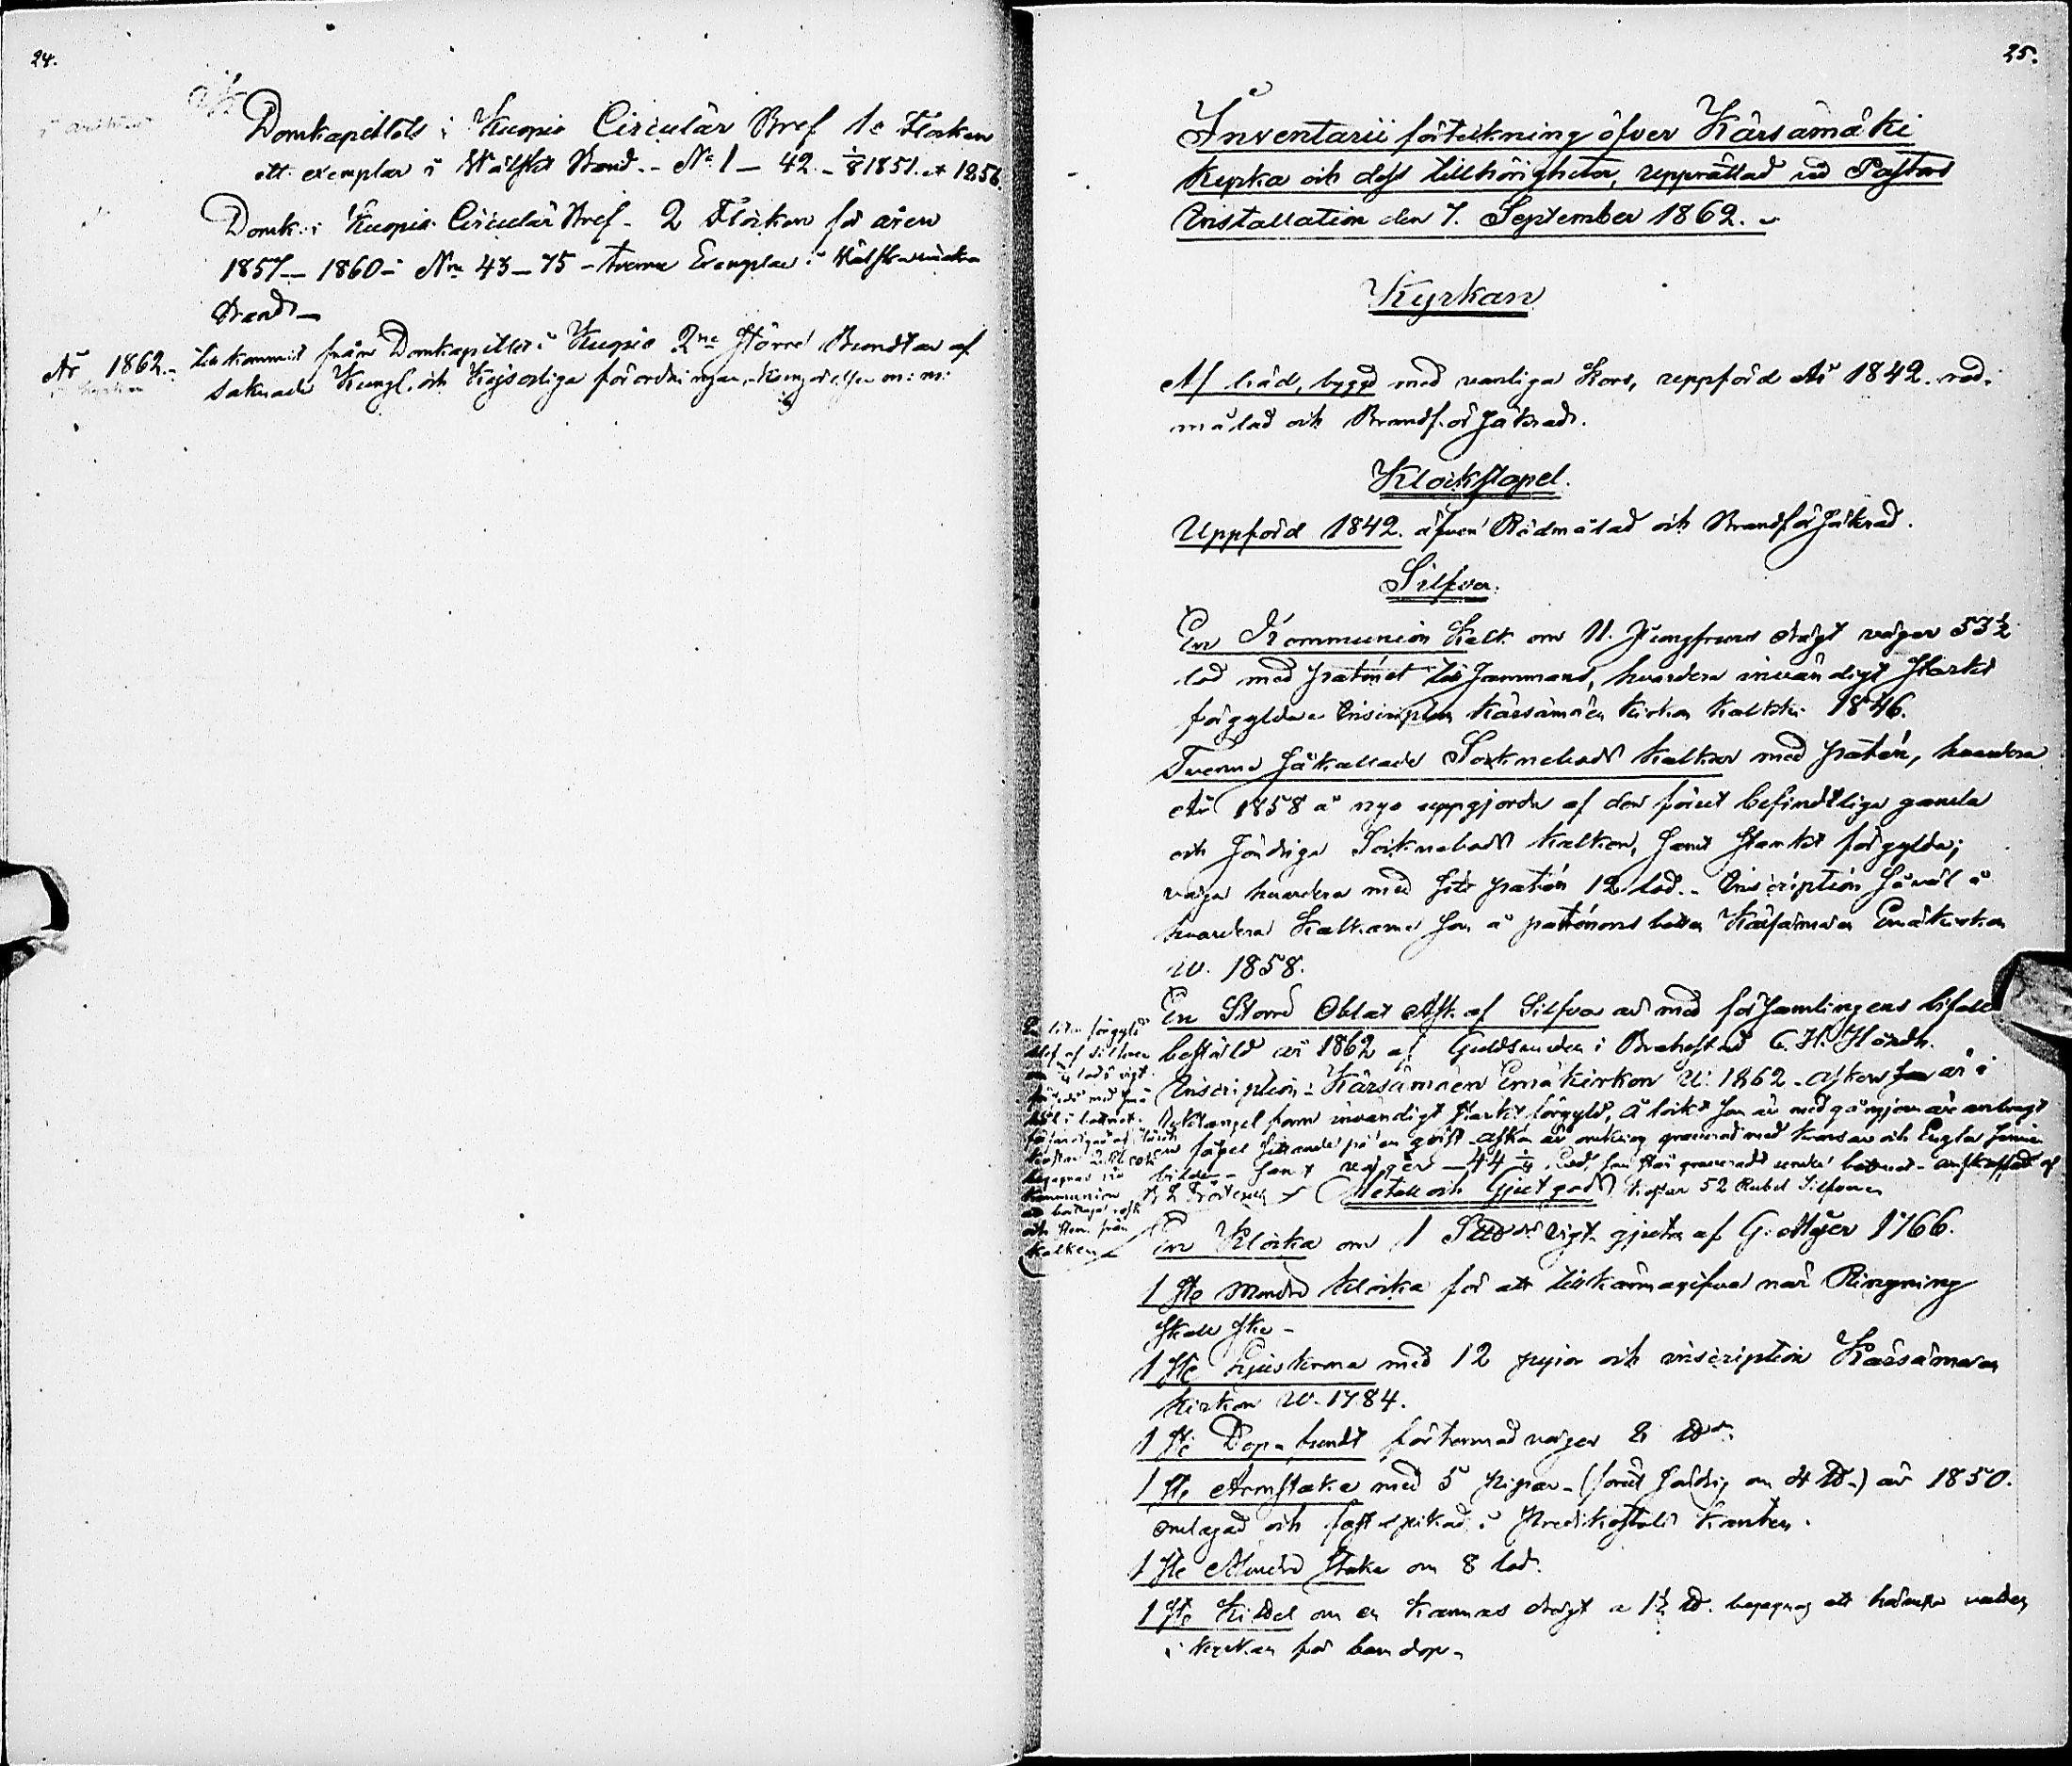 24.
Domkapitlets i Kuopio Circulär Bref 1e Flocken
ett exemplar i Hälfft Band. - No 1 - 42. - 1851. et 1856
Domk. i Kuopio Circulär Bref - 2 Flocken för åren
1857 - 1860 - Nro 43 - 75 - tvenne Exemplar i
Band -
År 1862. - Tillkommit från Domkapitlet i Kuopio 2ne större Bundtar af
saknade Kungl. och Kejserliga förordningar, Kungörelser m: m:
25.
Inventarii förteckning öfver Kärsämäki
Kyrka och dess tillhörigheter, upprättad vid Pastors
Installation den 7. September 1862. -
Kyrkan
Af träd, byggd med vanliga Kors, uppförd År 1842. röd-
målad och Brandförsäkrad.
Klockstapel.
Uppförd 1842. äfven Rödmålad och Brandförsäkrad.
Silfver.
En Kommunion Kalk om 11. Jungfrurs drägt väger 53½
lod med patenet tillsammans, hvardera invändigt starkt
förgyldna Inscription Kärsämäen Kirkon Kalkki 1846.
Tvenne såkallade Socknebuds Kalkar med patén, hvardera
År 1858 å nyo uppgjorda af den förut befindtliga gamla
och söndriga Sockenbuds Kalken, samt starkt förgylda;
väga hvardera med sitt patén 12 lod. - Inscription såväl å
hvardera Kalkarne som å paténens botten Kärsämäen Emäkirkon
W. 1858.
En Större Oblat Ask af Silfver med församlingens bifall
beställd år 1862 af Guldsmeden i Brahestad C. H. Hårdh.
Inscription: Kärsämäen Emäkirkon W: 1862 - Asken är i
Rektangel form invändigt starkt förgyld, å locket som är med gångjern är anbragt
en fågel sittande på en qvist - Asken är omkring graverad med kransar och Engla
bilder - samt väger - 44 ¼ Lod, som står graverad under bottnet - anskaffad af
Metall och Gjutgods kostar 52 Rubel Silfver
En liten förgyld
slef af silfver
om ¼ lods vigt
med små
hål i bottnet.
2 R
begagnas vid
Kommunion
och
från
Kalken
En Klocka om 1 vigt gjuten af G. Mÿer 1766.
1 st. Mindre Klocka för att tillkännagifva när Ringning
skall ske -
1 st. Ljuskrona med 12 pipor och inscription Kärsämäen
Kirkon W. 1784.
1 st. Dop-funt förtennad väger 2
1 st. Armstake med 5 pipor - (förut söndrig om 4 ) år 1850.
omlagad och fastspikad i Predikostols Kanten.
1 st. Mindre stake om 8 lod.
1 st. Kittel om en Kannas drägt a 1½ begagnas att hämta vatten
i kyrkan för barndop -